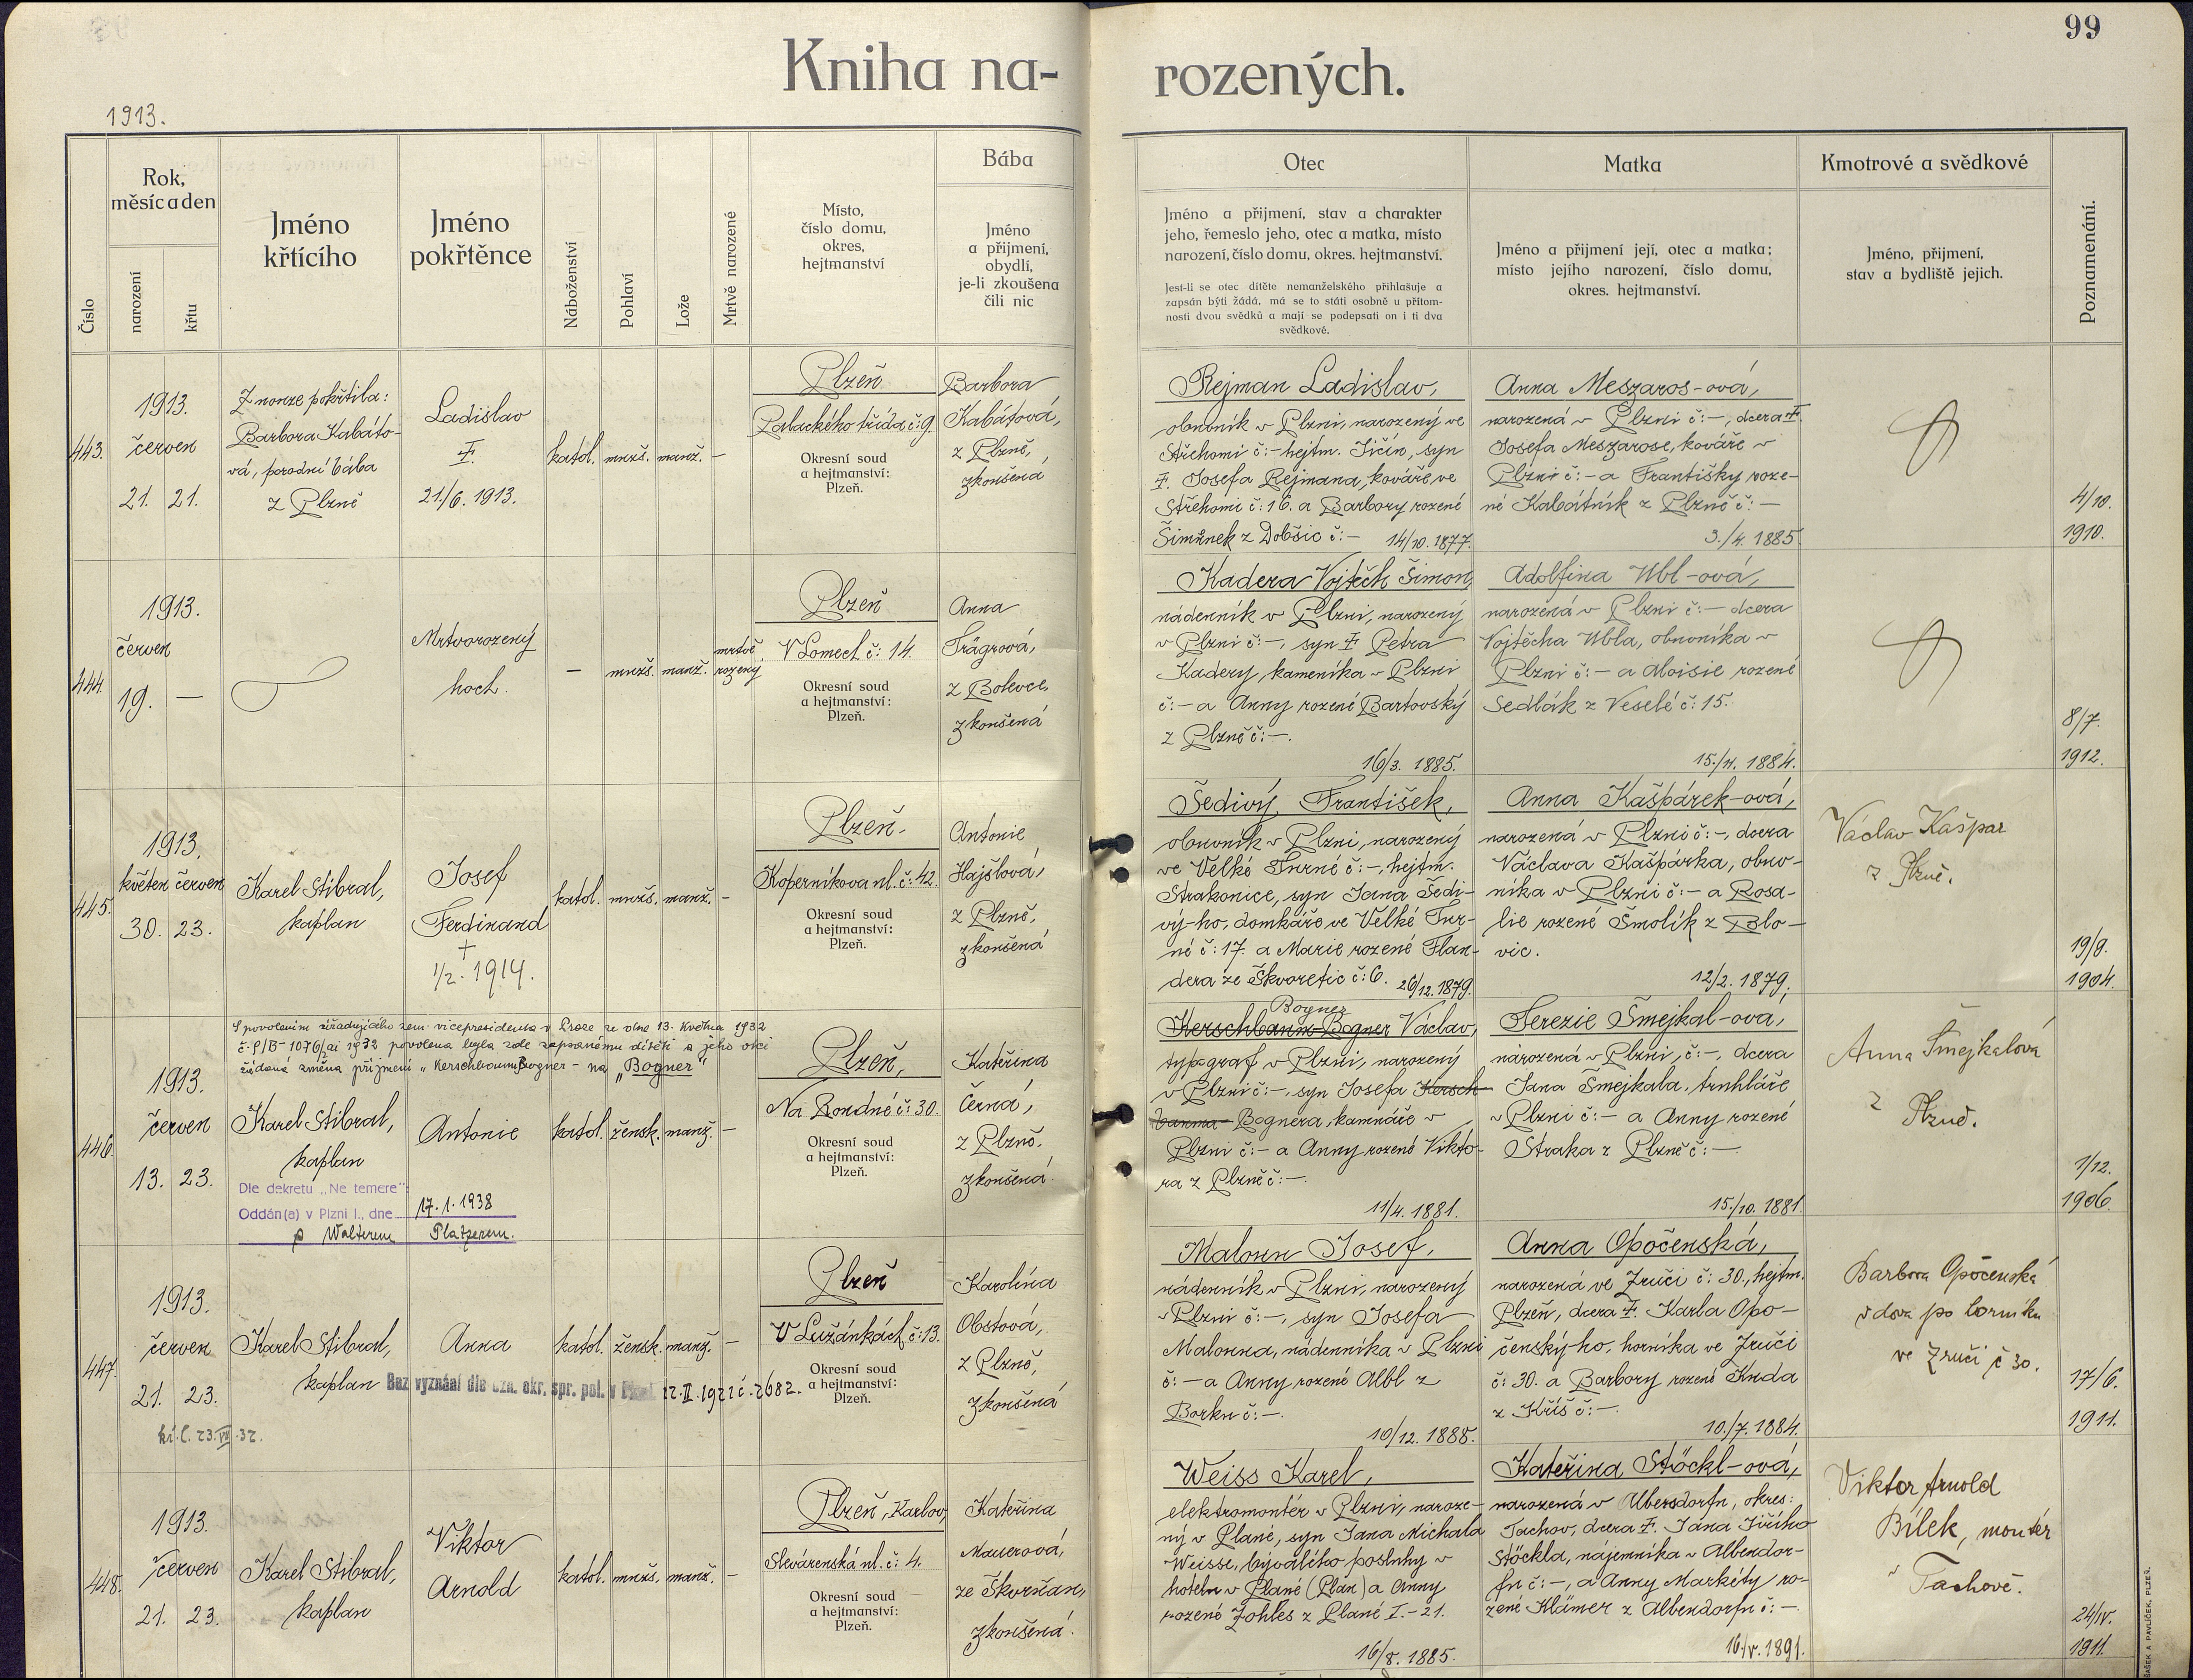 99
Kniha na-
rozených.
1913.
Číslo
Rok,
měsíc a den
narození
křtu
Jméno
křtícího
Jméno
pokřtěnce
Náboženství
Pohlaví
Lože
Mrtvě narozené
Místo,
číslo domu,
okres,
hejtmanství
Bába
Jméno
a přijmení,
obydlí,
je-li zkoušena
čili nic
Otec
Jméno a přijmení, stav a charakter
jeho, řemeslo jeho, otec a matka, místo
narození, číslo domu, okres. hejtmanství.
Jest-li se otec dítěte nemanželského přihlašuje a
zapsán býti žádá, má se to státi osobně u přítom-
nosti dvou svědků a mají se podepsati on i ti dva
svědkové.
Matka
Jméno a přijmení její, otec a matka;
místo jejího narození, číslo domu,
okres. hejtmanství.
Kmotrové a svědkové
Jméno, přijmení,
stav a bydliště jejich.
Poznamenání.
443.
1913.
červen
21. 21.
Z nouze pokřtila:
Barbora Kabáto-
vá, porodní bába
z Plzně
Ladislav
†.
21./6. 1913.
katol. mužs. manž. –
Plzeň
Palackého třída č: 9.
Okresní soud
a hejtmanství:
Plzeň.
Barbora
Kabátová,
z Plzně,
zkoušená
Rejman Ladislav,
obuvník v Plzni, narozený ve
Střehomi č:– hejtm. Jičín, syn
†. Josefa Rejmana, kováře ve
Střehomi č: 16. a Barbory rozené
Šimůnek z Dobšic č:– 14/10. 1877.
Anna Meszaros-ová,
narozená v Plzni č:–, dcera †.
Josefa Meszarose, kováře v
Plzni č:– a Františky roze-
né Kabátník z Plzně č:–
3./4. 1885.
4/10.
1910.
444.
1913.
červen
19. –
Mrtvorozený
hoch.
– mužs. manž. mrtvě
rozený
Plzeň
V Lomech č: 14.
Okresní soud
a hejtmanství:
Plzeň.
Anna
Trägrová,
z Bolevce,
zkoušená
Kadera Vojtěch Šimon,
nádenník v Plzni, narozený
v Plzni č:–, syn †. Petra
Kadery, kameníka v Plzni
č:– a Anny rozené Bartovský
z Plzně č:–.
16/3. 1885.
Adolfina Ubl-ová,
narozená v Plzni č:– dcera
Vojtěcha Ubla, obuvníka v
Plzni č:– a Aloisie rozené
Sedlák z Veselé č: 15.
15./11. 1884.
8/7.
1912.
445.
1913.
květen červen
30. 23.
Karel Stibral,
kaplan
Josef
Ferdinand
+
1/2. 1914.
katol. mužs. manž. –
Plzeň.
Koperníkova ul. č: 42.
Okresní soud
a hejtmanství:
Plzeň.
Antonie
Hajšlová,
z Plzně,
zkoušená
Šedivý František,
obuvník v Plzni, narozený
ve Velké Turné č:–, hejtm.
Strakonice, syn Jana Šedi-
vý-ho, domkáře ve Velké Tur-
né č: 17. a Marie rozené Flan-
dera ze Škvoretic č: 6. 26/12. 1879.
Anna Kašpárek-ová,
narozená v Plzni č:–, dcera
Václava Kašpárka, obuv-
níka v Plzni č:– a Rosa-
lie rozené Šmolík z Blo-
vic.
12/2. 1879.
Václav Kašpar
z Plzně.
19/9.
1904.
S povolením úřadujícího zem. vicepresidenta v Praze ze dne 13. května 1932
č. P/B-1076/ai 1932 povolena byla zde zapsanému dítěti a jeho otci
žádaná změna příjmení „Kerschbaum Bogner – na „Bogner"
446.
1913.
červen
13. 23.
Karel Stibral,
kaplan
Antonie
katol. žensk. manž. –
Dle dekretu „Ne temere":
Oddán(a) v Plzni I., dne 17. 1. 1938
s Walterem Platzerem.
Plzeň,
Na Roudné č: 30.
Okresní soud
a hejtmanství:
Plzeň.
Kateřina
Černá,
z Plzně.
zkoušená.
Bogner
Kerschbaum-Bogner Václav,
typograf v Plzni, narozený
v Plzni č:–, syn Josefa Kersch-
bauma-Bognera, kamnáře v
Plzni č:– a Anny rozené Vikto-
ra z Plzně č:–.
11/4. 1881.
Terezie Šmejkal-ova,
narozená v Plzni, č:–, dcera
Jana Šmejkala, truhláře
v Plzni č:– a Anny rozené
Straka z Plzně č:–.
15./10. 1881.
Anna Šmejkalová
z
Plzně.
1/12.
1906.
447.
1913.
červen
21. 23.
Karel Stibral,
kaplan
Anna
katol. žensk. manž. –
Bez vyznání dle ozn. okr. spr. pol. v Plzni 22. II. 1921 č. 2682.
Plzeň
V Lužánkách č: 13.
Okresní soud
a hejtmanství:
Plzeň.
Karolina
Obstová,
z Plzně,
zkoušená
Maloun Josef,
nádenník v Plzni, narozený
v Plzni č:–, syn Josefa
Malouna, nádenníka v Plzni
č:– a Anny rozené Albl z
Borku č:–.
10/12. 1888.
Anna Opočenská,
narozená ve Zruči č: 30., hejtm.
Plzeň, dcera †. Karla Opo-
čenský-ho, horníka ve Zruči
č: 30. a Barbory rozené Kuda
z Kříš č:–.
10./7. 1884.
Barbora Opočenská
vdova po horníku
ve Zruči č 30.
17/6.
1911.
448.
1913.
červen
21. 23.
Karel Stibral,
kaplan
Viktor
Arnold
katol. mužs. manž. –
Plzeň, Karlov,
Slevárenská ul. č: 4.
Okresní soud
a hejtmanství:
Plzeň.
Kateřina
Mauerová,
ze Škvrňan,
zkoušená.
Weiss Karel,
elektromontér v Plzni, naroze-
ný v Plané, syn Jana Michala
Weisse, bývalého posluhy v
hotelu v Plané (Plan) a Anny
rozené Zohles z Plané I.-21.
16/8. 1885.
Kateřina Stöckl-ová,
narozená v Albersdorfu, okres:
Tachov, dcera †. Jana Jiřího
Stöckla, nájemníka v Albendor-
fu č:–, a Anny Markéty ro-
zené Klämer z Albendorfu č:–.
16./V. 1891.
Viktor Arnold
Bílek, montér
v Tachově.
24/IV.
1911.
ŠAŠEK A PAVLÍČEK, PLZEŇ.